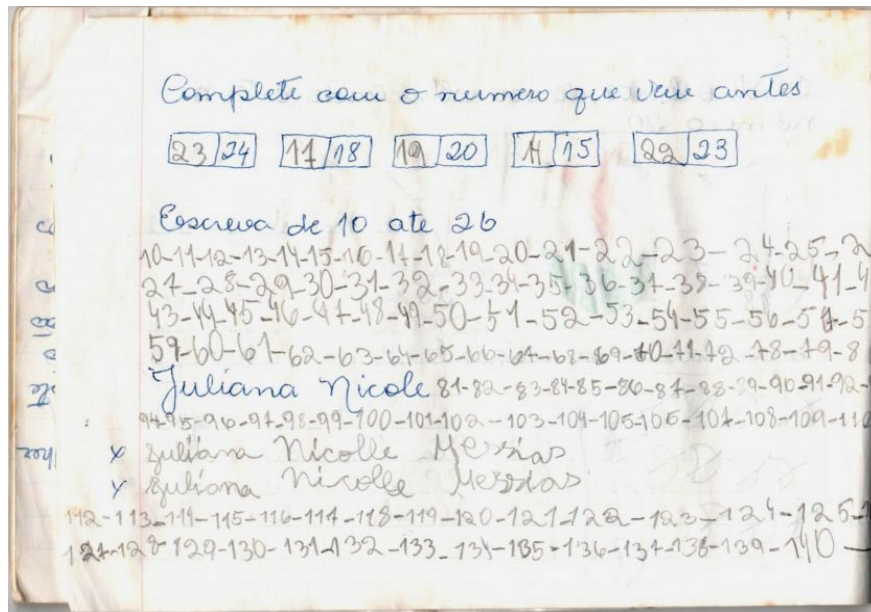 Complete com o numero que vem antes
23 24 17 18 19 20 14 15 22 23
Escreva de 10 ate 26
10-11-12-13-14-15-16-17-18-19-20-21-22-23-24-25-2
27-28-29-30-31-32-33-34-35-36-37-38-39-40-41-4
43-44-45-46-47-48-49-50-51-52-53-54-55-56-57-5
59-60-61-62-63-64-65-66-67-68-69-70-71-72-78-79-8
Juliana Nicole 81-82-83-84-85-86-87-88-89-90-91-92-
94-95-96-97-98-99-100-101-102-103-104-105-106-107-108-109-110
x Juliana Nicolle Messias
x Juliana Nicolle Messias
112-113-114-115-116-117-118-119-120-121-122-123-124-125-1
127-128-129-130-131-132-133-134-135-136-137-138-139-140-